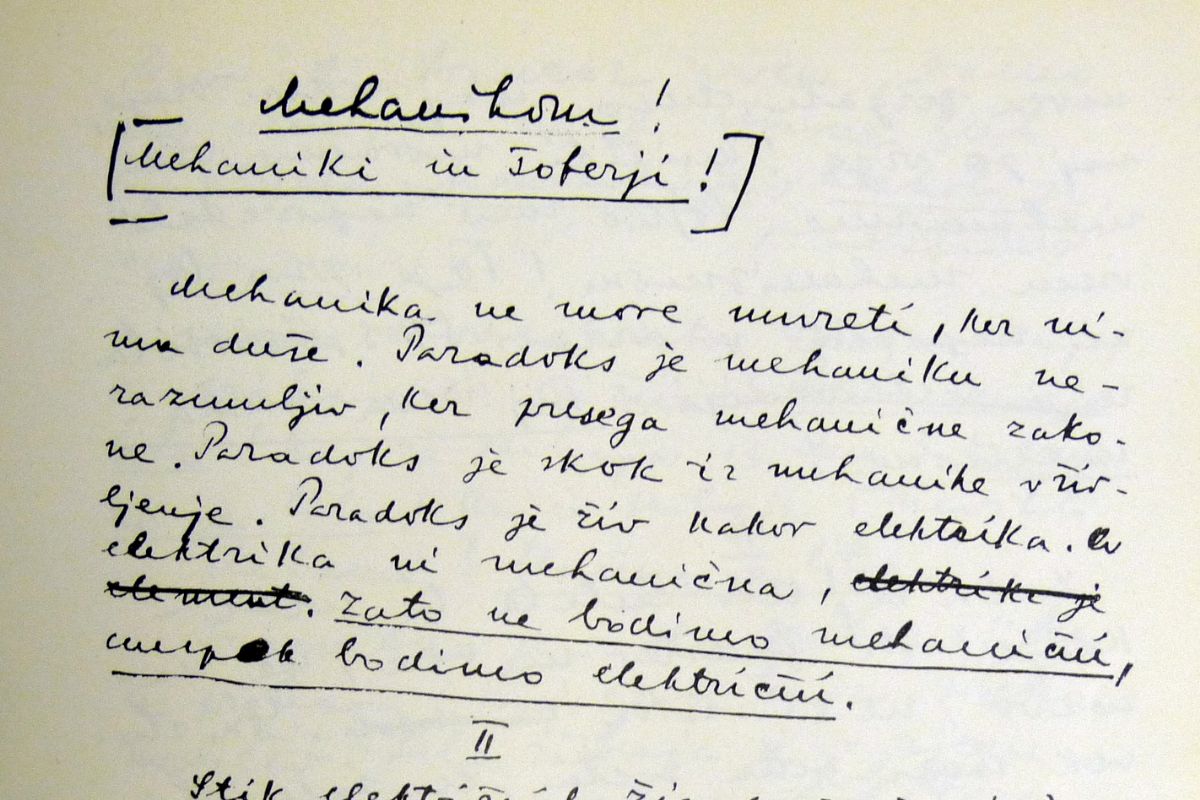 Mehanikom!
[Mehaniki in šoferji!]
Mehanika ne more umreti, ker ni-
ma duše. Paradoks je mehaniku ne-
razumljiv, ker presega mehanične zako-
ne. Paradoks je skok iz mehanike v živ-
ljenje. Paradoks je živ kakor elektrika.
elektrika ni mehanična, elektrika je
element. Zato ne bodimo mehanični,
ampak bodimo električni.
II
Stik